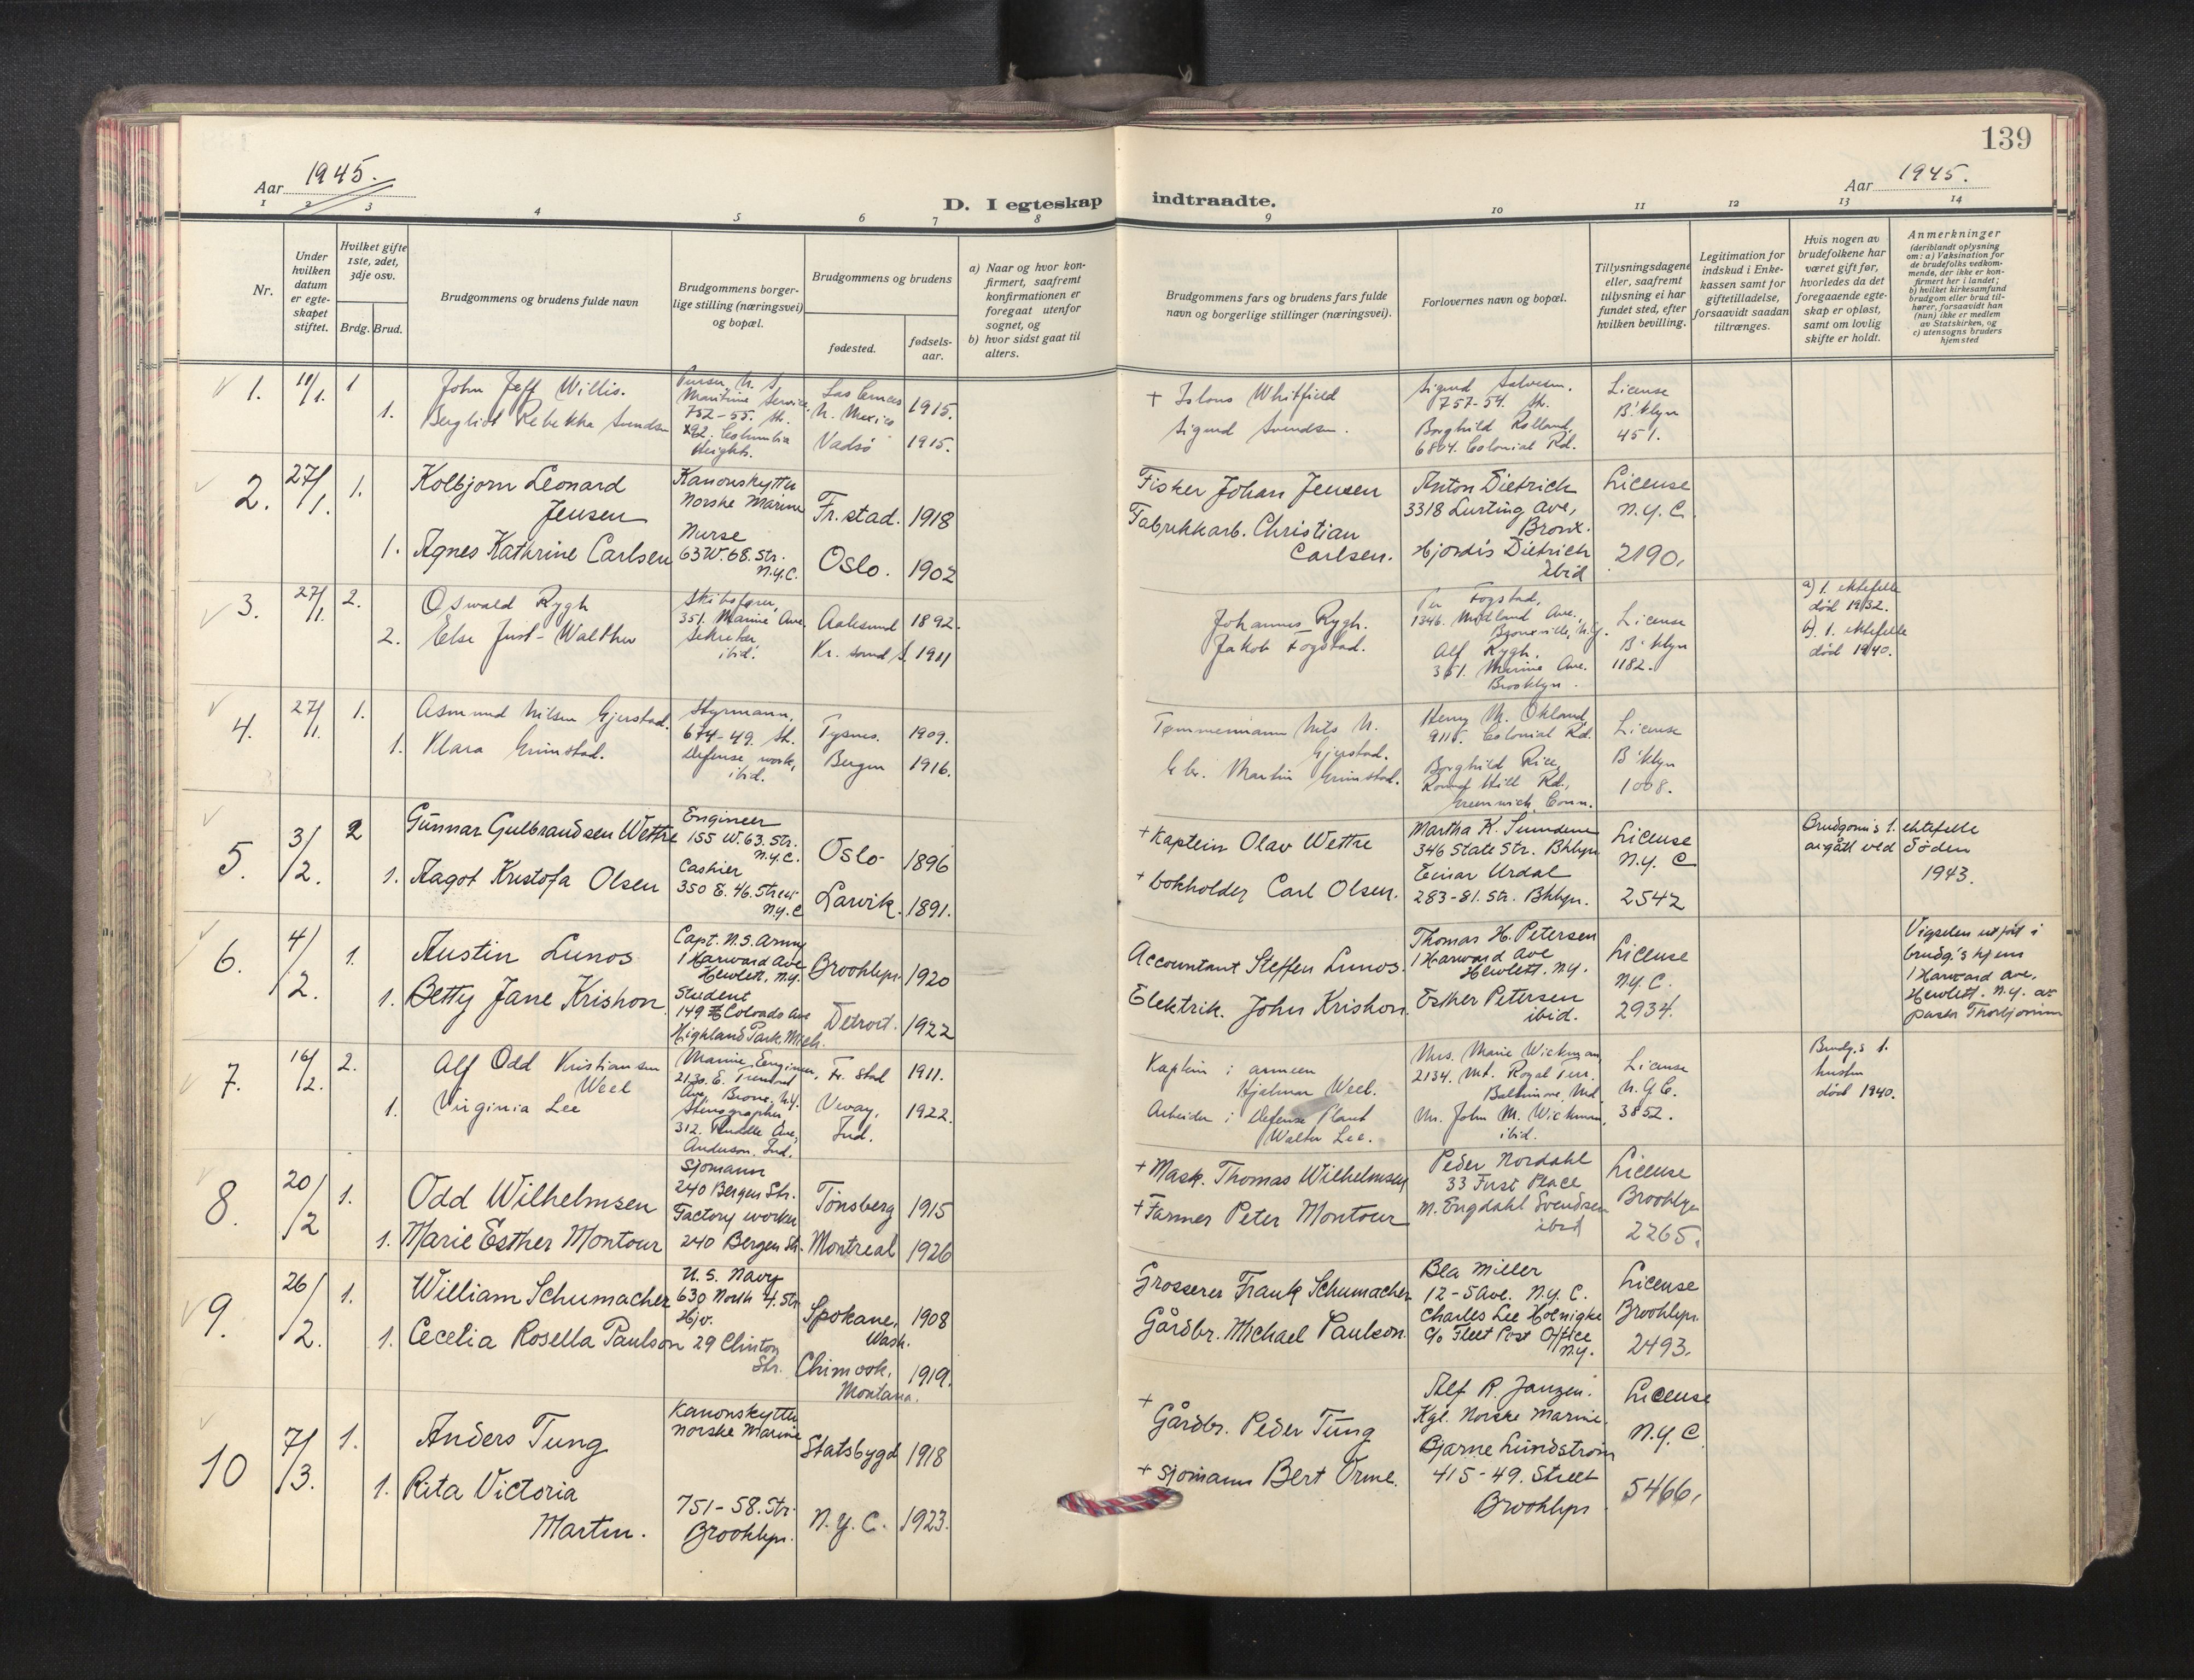 139
Aar 1945.
Aar 1945.
D. I egteskap indtraadte.
1 2 3 4 5 6 7 8 9 10 11 12 13 14
Nr.
Under
hvilken
datum
er egte-
skapet
stiftet.
Hvilket gifte
1ste, 2det,
3dje osv.
Brdg. Brud.
Brudgommens og brudens fulde navn
Brudgommens borger-
lige stilling (næringsvei)
og bopæl.
Brudgommens og brudens
fødested.
fødsels-
aar.
a) Naar og hvor kon-
firmert, saafremt
konfirmationen er
foregaat utenfor
sognet, og
b) hvor sidst gaat til
alters.
Brudgommens fars og brudens fars fulde
navn og borgerlige stillinger (næringsvei).
Forlovernes navn og bopæl.
Tillysningsdagene
eller, saafremt
tillysning ei har
fundet sted, efter
hvilken bevilling.
Legitimation for
indskud i Enke-
kassen samt for
giftetilladelse,
forsaavidt saadan
tiltrænges.
Hvis nogen av
brudefolkene har
været gift før,
hvorledes da det
foregaaende egte-
skap er opløst,
samt om lovlig
skifte er holdt.
Anmerkninger
(deriblandt oplysning
om: a) Vaksination for
de brudefolks vedkom-
mende, der ikke er kon-
firmert her i landet;
b) hvilket kirkesamfund
brudgom eller brud til-
hører, forsaavidt han
(hun) ikke er medlem
av Statskirken, og
c) utensogns bruders
hjemsted
1. 1 John Jeff Willis.
1. Bergliot Rebekka Svendsen
Purser, U. S.
Maritime Service,
752-55. St.
Columbia
Heights.
N. Mexico 1915.
Vadsø 1915.
+ Whitfield
Sigurd Svendsen.
Sigurd
757-54. St.
Borghild Rolland,
6804. Colonial Rd.
License
B'klyn
451.
2. 27/1. 1. Kolbjorn Leonard
Jensen
1. Agnes Kathrine Carlsen
Kanonskytter
Norske Marine
Nurse
63 W. 68. Str.
N.Y.C.
Fr.stad. 1918
Oslo. 1902
Fisker Johan Jensen
Fabrikkarb. Christian
Carlsen.
Anton Dietrich
3318 Lurting Ave,
Bronx.
Hjordis Dietrich
ibid
License
N.Y.C.
2190.
3. 27/1. 2. Oswald Rygh
2. Else Just-Walther
Skibsfører,
351. Marine Ave.
Sekretær
ibid.
Aalesund 1892.
Kr. sund S. 1911
Johannes Rygh.
Jakob Fogstad.
Per Fogstad,
1346. Midland Ave.,
Bronxville, N.Y.
Alf Rygh,
351. Marine Ave.
Brooklyn.
License
B'klyn
1182.
a) 1. ektefelle
død 1932.
b). 1. ektefelle
død 1940.
4. 27/1. 1. Asmund Nilsen Gjerstad.
1. Klara Grimstad.
Styrmann,
674-49. St.
Defense work,
ibid.
Tysnes. 1909.
Bergen 1916.
Tømmermann Nils N.
Gjerstad.
Gbr. Martin Grimstad.
Henry M. Økland,
9115. Colonial Rd.
Borghild Rice,
Round Hill Rd.,
Greenwich, Conn.
License
B'klyn
1008.
5. 3/2. 2 Gunnar Gulbrandsen Wettre
1. Aagot Kristofa Olsen
Engineer
155 W. 63. Str.
N.Y.C.
Cashier
350 E. 46. Street
N.Y.C
Oslo 1896
Larvik. 1891.
+ Kaptein Olav Wettre
+ bokholder Carl Olsen.
Martha K.
346 State Str. Bklyn
Einar Urdal
283-81. Str. Bklyn.
License
N.Y.C
2542
Brudgoms 1. ektefelle
avgått ved døden
1943.
6. 4/2. 1. Austin Lunos
1. Betty Jane Krishon
Capt. U.S. Army
1 Harward Ave
Hewlett, N.Y.
Student
149 Colorado Ave
Highland Park, Mich.
Brooklyn. 1920
Detroit. 1922
Accountant Steffen Lunos.
Elektrik. John Krishon.
Thomas H. Petersen
1 Harward Ave
Hewlett. N.Y.
Esther Petersen
ibid.
License
N.Y.C.
2934.
Vigselen utført i
brudg.'s hjem
1 Harward Ave.
Hewlett. N.Y. av
pastor Thorbjørnsen
7. 16/2. 2. Alf Odd Kristiansen
Weel
1. Virginia Lee
Marine Engineer,
2130. E. Tremont
Ave, Bronx, N.Y.
Stenographer
312. Ave,
Anderson, Ind.
Fr. stad 1911.
Vevay, 1922.
Ind.
Kaptein i armeen
Hjalmar Weel.
Arbeider i Defense Plant
Walter Lee.
Mrs. Marie Wickman,
2134. Mt. Royal Terr.
Baltimore, Md.
Mr. John M. Wickman,
ibid.
License
N.Y.C.
3852.
Brudg.s 1.
hustru
død 1940.
8. 20/2 1. Odd Wilhelmsen
1. Marie Esther Montour
Sjømann
240 Bergen Str.
Factory worker
240 Bergen Str.
Tønsberg 1915
Montreal 1926
+ Mask. Thomas Wilhelmsen
+ Farmer Peter Montour
Peder Nordahl
33 First Place
M. Engdahl Svendsen
ibid
License
Brooklyn
2265.
9. 26/2. 1. William Schumacher
1. Cecelia Rosella Paulson
U.S. Navy
630 North 4. Str
Hjv.
29 Clinton
Str.
Spokane, 1908
Wash.
Chinook, 1919.
Montana.
Grosserer Frank Schumacher
Gårdbr. Michael Paulson
Bea Miller
12-5 Ave. N.Y.C.
Charles Lee Hoenigke
c/o Fleet Post Office
N.Y.
License
Brooklyn.
2493.
10 7/3. 1. Anders Tung
1. Rita Victoria
Martin.
Kanonskytter
norske Marine
751-58. Str.
Brooklyn.
Statsbygd 1918
N.Y.C. 1923.
+
Gårdbr. Peder Tung
+ sjømann Bert Orme.
Alf R. Janzen.
Kgl. Norske Marine.
Bjarne Lundstrøm
415-49. Street
Brooklyn
License
N.Y.C
5466.